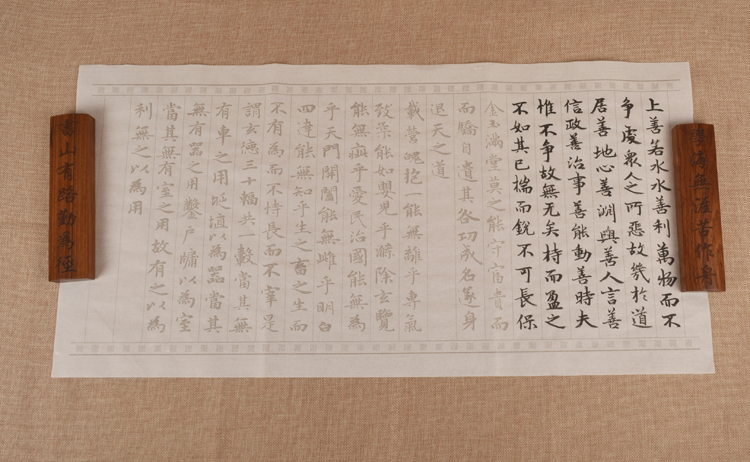 學海無涯苦作舟
上善若水水善利萬物而不
争處衆人之所惡故幾於道
居善地心善淵與善人言善
信政善治事善能動善時夫
惟不争故無尤矣持而盈之
不如其已揣而銳不可長保
金玉滿堂莫之能守富貴而
而驕自遺其咎功成名遂身
退天之道
載營魄抱一能無離乎專氣
致柔能如嬰兒乎滌除玄覽
能無疵乎愛民治國能無為
乎天門開闔能無雌乎明白
四達能無知乎生之畜之生而
不有為而不恃長而不宰是
謂玄德三十輻共一轂當其無
有車之用埏埴以為器當其
無有器之用鑿戶牖以為室
當其無有室之用故有之以為
利無之以為用
書山有路勤為徑